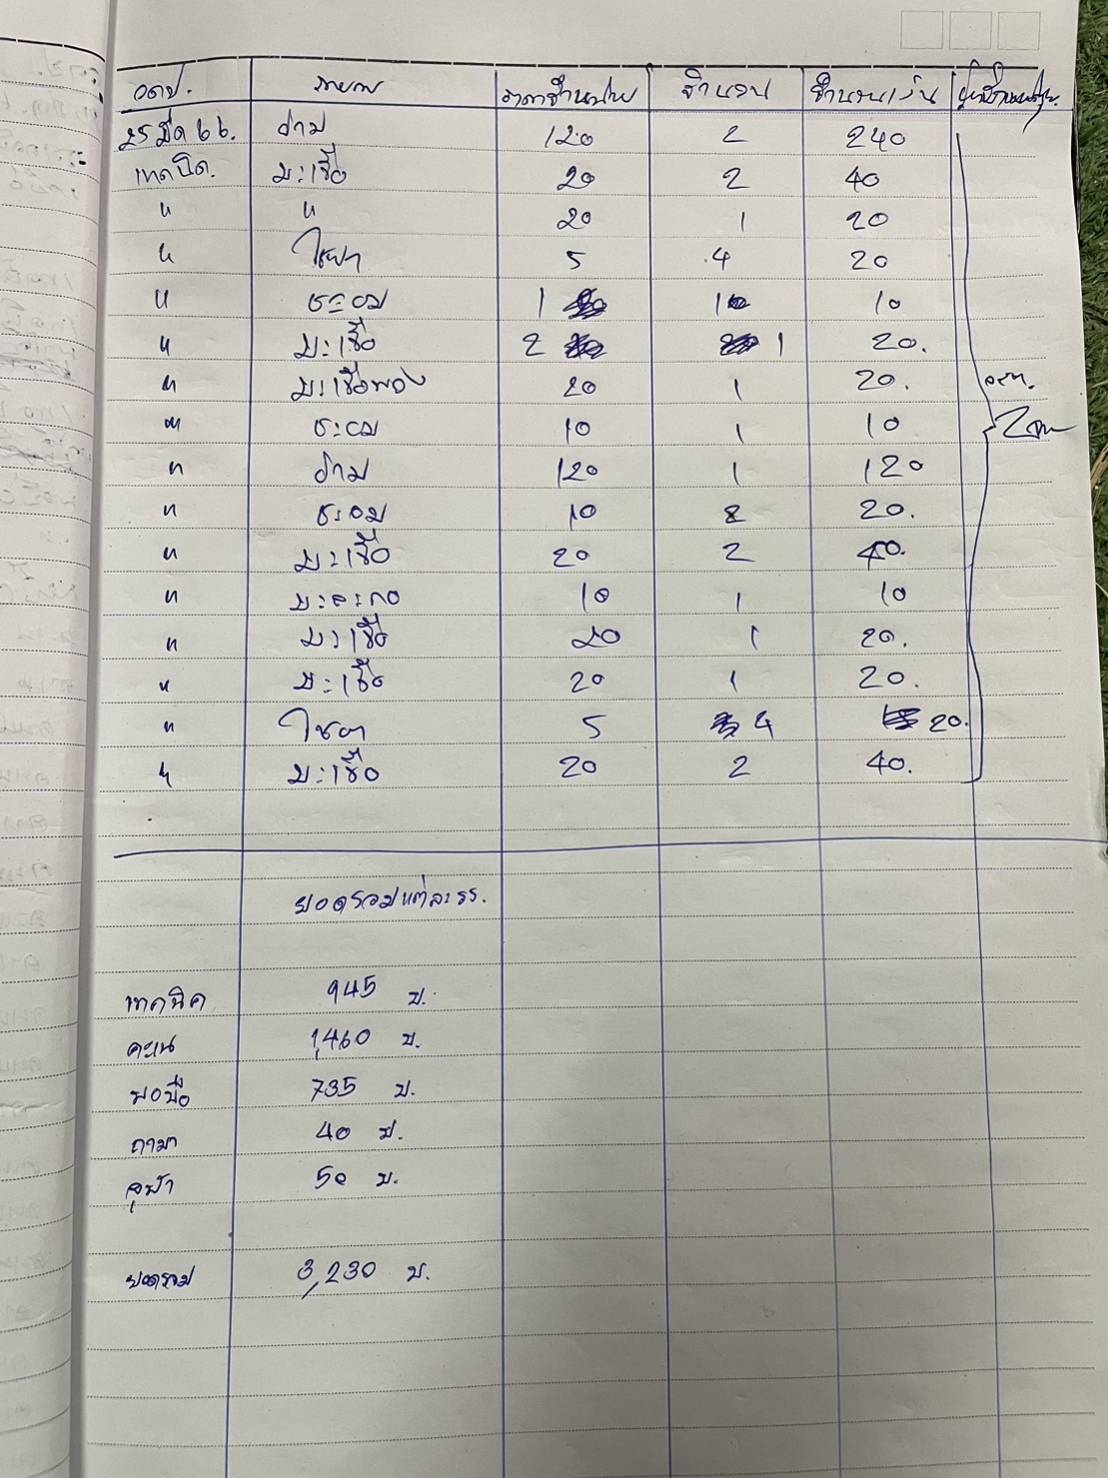 วดป. รายการ ราคาจำหน่าย จำนวน จำนวนเงิน
25 มิค 66. ชาม 120 2 240
เทคนิค. มะเขือ 20 2 40
" " 20 1 20
" ไข่เป็ด 5 4 20
" ชะอม 1 10 10
" มะเขือ 2 1 20.
" มะเขือพวง 20 1 20.
" ชะอม 10 1 10
" ชาม 120 1 120
" ชะอม 10 2 20.
" มะเขือ 20 2 40.
" มะละกอ 10 1 10
" มะเขือ 20 1 20.
" มะเขือ 20 1 20.
" 5 4 20.
" มะเขือ 20 2 40.
ยอดรวมแต่ละรร.
เทคนิค 945 บ.
คะแน 1,460 บ.
พอมือ 735 บ.
ถามา 40 บ.
จุฬา 50 บ.
ยอดรวม 3,230 บ.